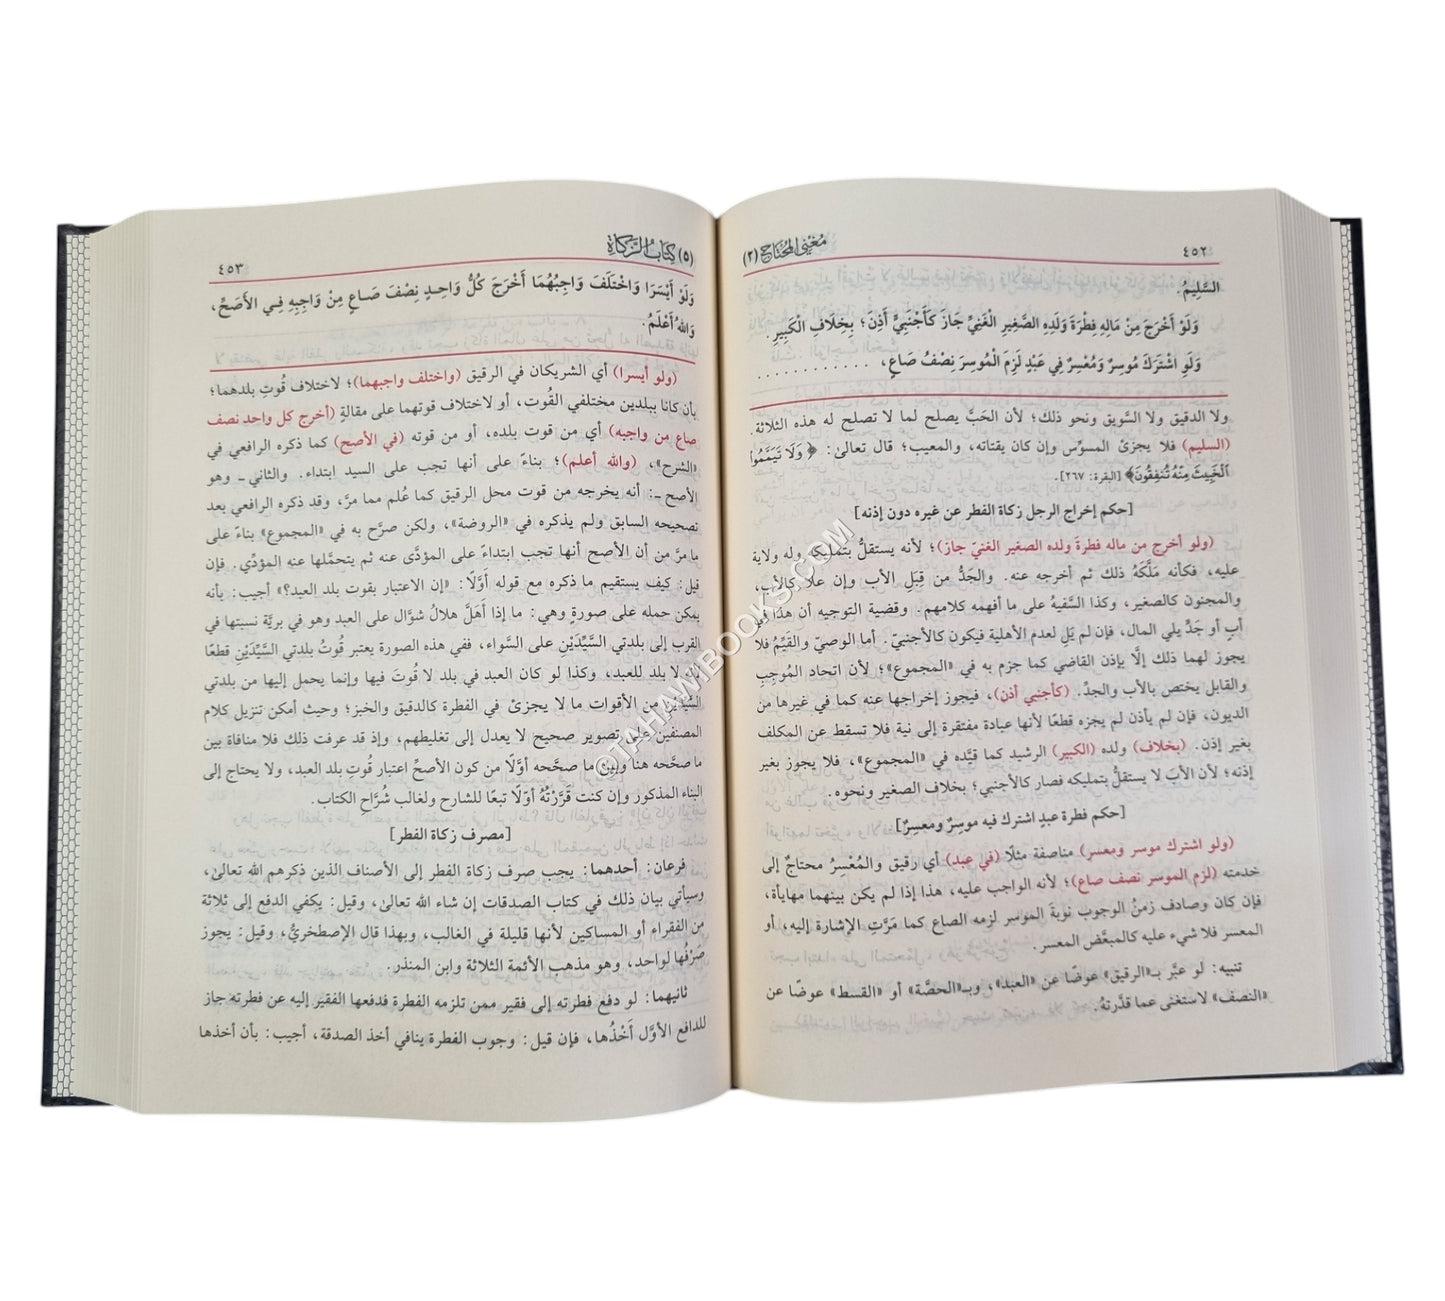 ٤٥٢
مغني المحتاج (٢)
السَّلِيمُ.
وَلَوْ أَخْرَجَ مِنْ مَالِهِ فِطْرَةَ وَلَدِهِ الصَّغِيرِ الْغَنِيِّ جَازَ كَأَجْنَبِيٍّ أَذِنَ؛ بِخِلَافِ الْكَبِيرِ.
وَلَوِ اشْتَرَكَ مُوسِرٌ وَمُعْسِرٌ فِي عَبْدٍ لَزِمَ الْمُوسِرَ نِصْفُ صَاعٍ، . . . . . . . . . . . .
ولا الدقيق ولا السَّويق ونحو ذلك؛ لأن الحَبَّ يصلح لما لا تصلح له هذه الثلاثة.
(السليم) فلا يجزئ المسوِّس وإن كان يقتاته، والمعيب؛ قال تعالىٰ: ﴿ وَلَا تَيَمَّمُوا
ٱلْخَبِيثَ مِنْهُ تُنفِقُونَ﴾ [البقرة: ٢٦٧].
[حكم إخراج الرجل زكاة الفطر عن غيره دون إذنه]
(ولو أخرج من ماله فطرةَ ولده الصغير الغنيّ جاز)؛ لأنه يستقلُّ بتمليكه وله ولاية
عليه، فكأنه مَلَّكَهُ ذلك ثم أخرجه عنه. والجَدُّ من قِبَلِ الأب وإن علا كالأب،
والمجنون كالصغير، وكذا السَّفيهُ على ما أفهمه كلامهم. وقضية التوجيه أن هذا في
أبٍ أو جَدٍّ يلي المال، فإن لم يَلِ لعدم الأهلية فيكون كالأجنبيّ. أما الوصيّ والقَيِّمُ فلا
يجوز لهما ذلك إلَّا بإذن القاضي كما جزم به في «المجموع»؛ لأن اتحاد المُوجِبِ
والقابل يختص بالأب والجدِّ. (كأجنبي أذن)، فيجوز إخراجها عنه كما في غيرها من
الديون، فإن لم يأذن لم يجزه قطعًا لأنها عبادة مفتقرة إلى نية فلا تسقط عن المكلف
بغير إذن. (بخلاف) ولده (الكبير) الرشيد كما قيَّده في «المجموع»، فلا يجوز بغير
إذنه؛ لأن الأبَ لا يستقلُّ بتمليكه فصار كالأجنبي؛ بخلاف الصغير ونحوه.
[حكم فطرة عبدٍ اشترك فيه موسِرٌ ومعسِرٌ]
(ولو اشترك موسر ومعسر) مناصفة مثلًا (في عبد) أي رقيق والمُعْسِرُ محتاجٌ إلى
خدمته (لزم الموسر نصف صاع)؛ لأنه الواجب عليه، هذا إذا لم يكن بينهما مهايأة،
فإن كان وصادف زمنُ الوجوب نوبةَ الموسر لزمه الصاع كما مَرَّتِ الإشارة إليه، أو
المعسر فلا شيء عليه كالمبعَّض المعسر.
تنبيه: لو عبَّر بـ«الرقيق» عوضًا عن «العبد»، وبـ«الحصَّة» أو «القسط» عوضًا عن
«النصف» لاستغنى عما قدَّرتهُ.
(٥) كتاب الزكاة
٤٥٣
وَلَوْ أَيْسَرَا وَاخْتَلَفَ وَاجِبُهُمَا أَخْرَجَ كُلُّ وَاحِدٍ نِصْفَ صَاعٍ مِنْ وَاجِبِهِ فِي الأَصَحِّ،
وَاللهُ أَعْلَمُ.
(ولو أيسرا) أي الشريكان في الرقيق (واختلف واجبهما)؛ لاختلاف قُوتِ بلدهما؛
بأن كانا ببلدين مختلفي القُوت، أو لاختلاف قوتهما على مقالةٍ (أخرج كل واحد نصف
صاع من واجبه) أي من قوت بلده، أو من قوته (في الأصح) كما ذكره الرافعي في
«الشرح»، (والله أعلم)؛ بناءً على أنها تجب على السيد ابتداء. والثاني ـ وهو
الأصح ـ: أنه يخرجه من قوت محل الرقيق كما عُلم مما مرَّ، وقد ذكره الرافعي بعد
تصحيحه السابق ولم يذكره في «الروضة»، ولكن صرَّح به في «المجموع» بناءً على
ما مرَّ من أن الأصح أنها تجب ابتداءً على المؤدَّى عنه ثم يتحمَّلها عنه المؤدِّي. فإن
قيل: كيف يستقيم ما ذكره مع قوله أوَّلًا: «إن الاعتبار بقوت بلد العبد؟» أجيب: بأنه
يمكن حمله على صورةٍ وهي: ما إذا أَهَلَّ هلالُ شوَّال على العبد وهو في بريَّة نسبتها في
القرب إلى بلدتي السَّيِّدَيْنِ على السَّواء، ففي هذه الصورة يعتبر قُوتُ بلدتي السَّيِّدَيْنِ قطعًا
لا بلد للعبد، وكذا لو كان العبد في بلد لا قُوتَ فيها وإنما يحمل إليها من بلدتي
السَّيِّدَيْنِ من الأقوات ما لا يجزئ في الفطرة كالدقيق والخبز؛ وحيث أمكن تنزيل كلام
المصنفين على تصوير صحيح لا يعدل إلى تغليطهم، وإذ قد عرفت ذلك فلا منافاة بين
ما صحَّحه هنا وبين ما صحَّحه أوَّلًا من كون الأصحِّ اعتبار قُوتِ بلد العبد، ولا يحتاج إلى
البناء المذكور وإن كنت قَرَّرْتُهُ أوّلًا تبعًا للشارح ولغالب شُرَّاحِ الكتاب.
[مصرف زكاة الفطر]
فرعان: أحدهما: يجب صرف زكاة الفطر إلى الأصناف الذين ذكرهم الله تعالىٰ،
وسيأتي بيان ذلك في كتاب الصدقات إن شاء الله تعالىٰ، وقيل: يكفي الدفع إلى ثلاثة
من الفقراء أو المساكين لأنها قليلة في الغالب، وبهذا قال الإصطخريُّ، وقيل: يجوز
صَرْفُها لواحد، وهو مذهب الأئمة الثلاثة وابن المنذر.
ثانيهما: لو دفع فطرته إلى فقير ممن تلزمه الفطرة فدفعها الفقير إليه عن فطرته جاز
للدافع الأوَّل أَخْذُها، فإن قيل: وجوب الفطرة ينافي أخذ الصدقة، أجيب: بأن أخذها
©TAHAWIBOOKS.COM